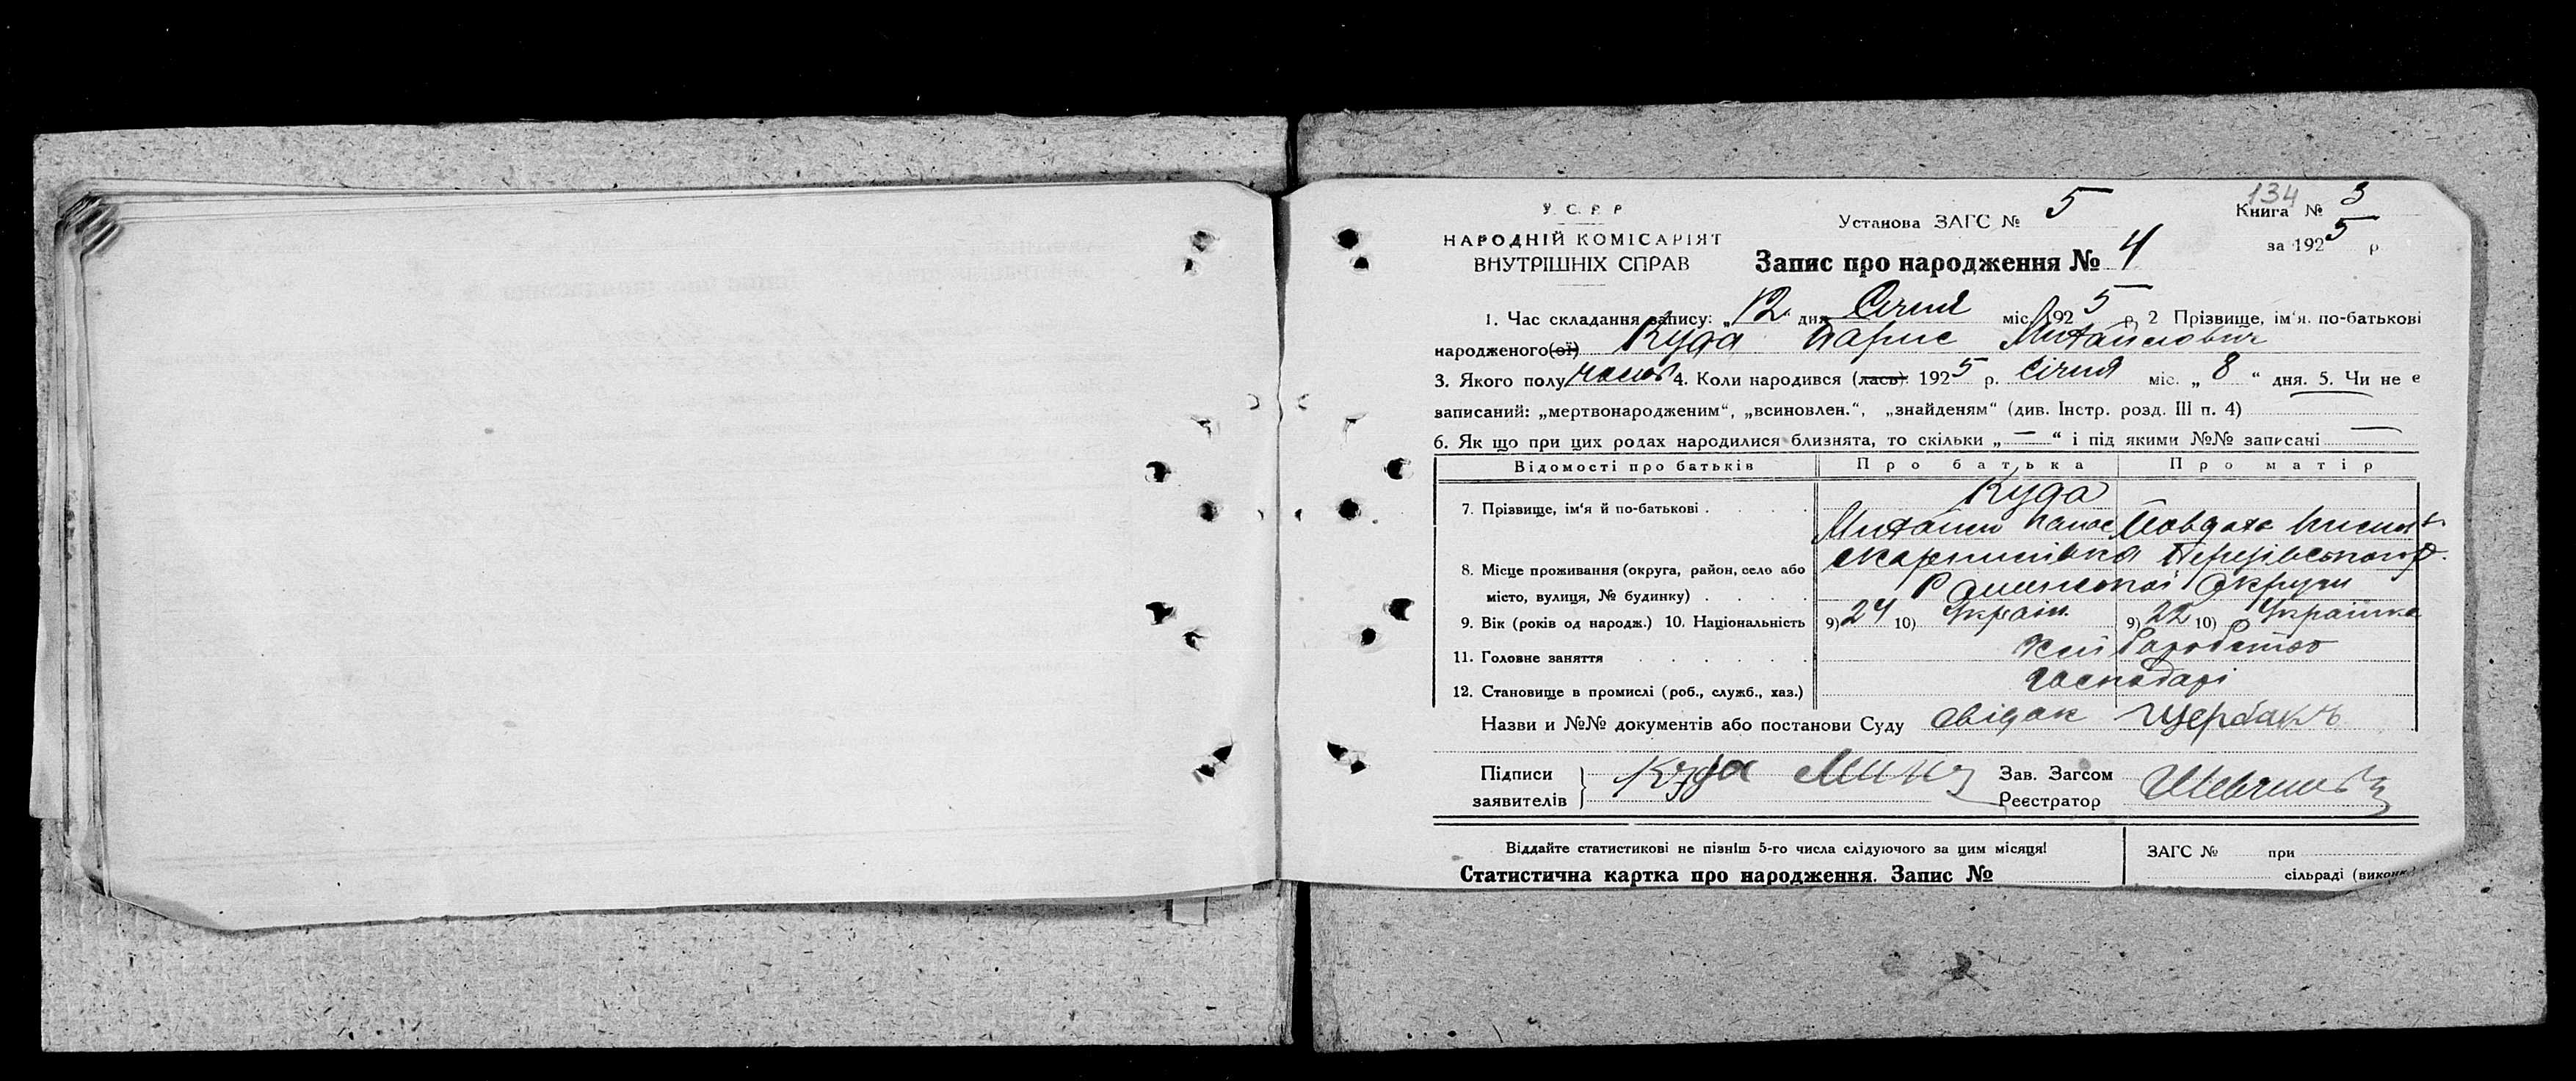 134
У. С. Р. Р
НАРОДНІЙ КОМІСАРІЯТ
ВНУТРІШНІХ СПРАВ
Установа ЗАГС № 5
Книга № 3
за 1925 р
Запис про народження № 4
1. Час складання запису: „12" дня Січня міс. 1925 р. 2 Прізвище, ім'я. по-батькові
народженого(ої) Куда Борис Михайлович
3. Якого полу 4. Коли народився (лась) 1925 р. січня міс. „8" дня. 5. Чи не є
записаний: „мертвонародженим", „всиновлен.", „знайденям" (див. Інстр. розд. III п. 4)
6. Як що при цих родах народилися близнята, то скільки „—" і під якими №№ записані —
Відомості про батьків Про батька Про матір
Куда
7. Прізвище, ім'я й по-батькові
Михайло Панас
8. Місце проживання (округа, район, село або
місто, вулиця, № будинку) Роменської Округи
9. Вік (років од народж.) 10. Національність 9) 24 10) Україн. 9) 22 10) Українка
11. Головне заняття Хліборобство
12. Становище в промислі (роб., служб., хаз.) Господарі
Назви и №№ документів або постанови Суду Свідок Щербакъ
Підписи
заявителів Куда
Зав. Загсом
Реєстратор
Віддайте статистикові не пізніш 5-го числа слідуючого за цим місяця!
Статистична картка про народження. Запис №
ЗАГС № при
сільраді (викон